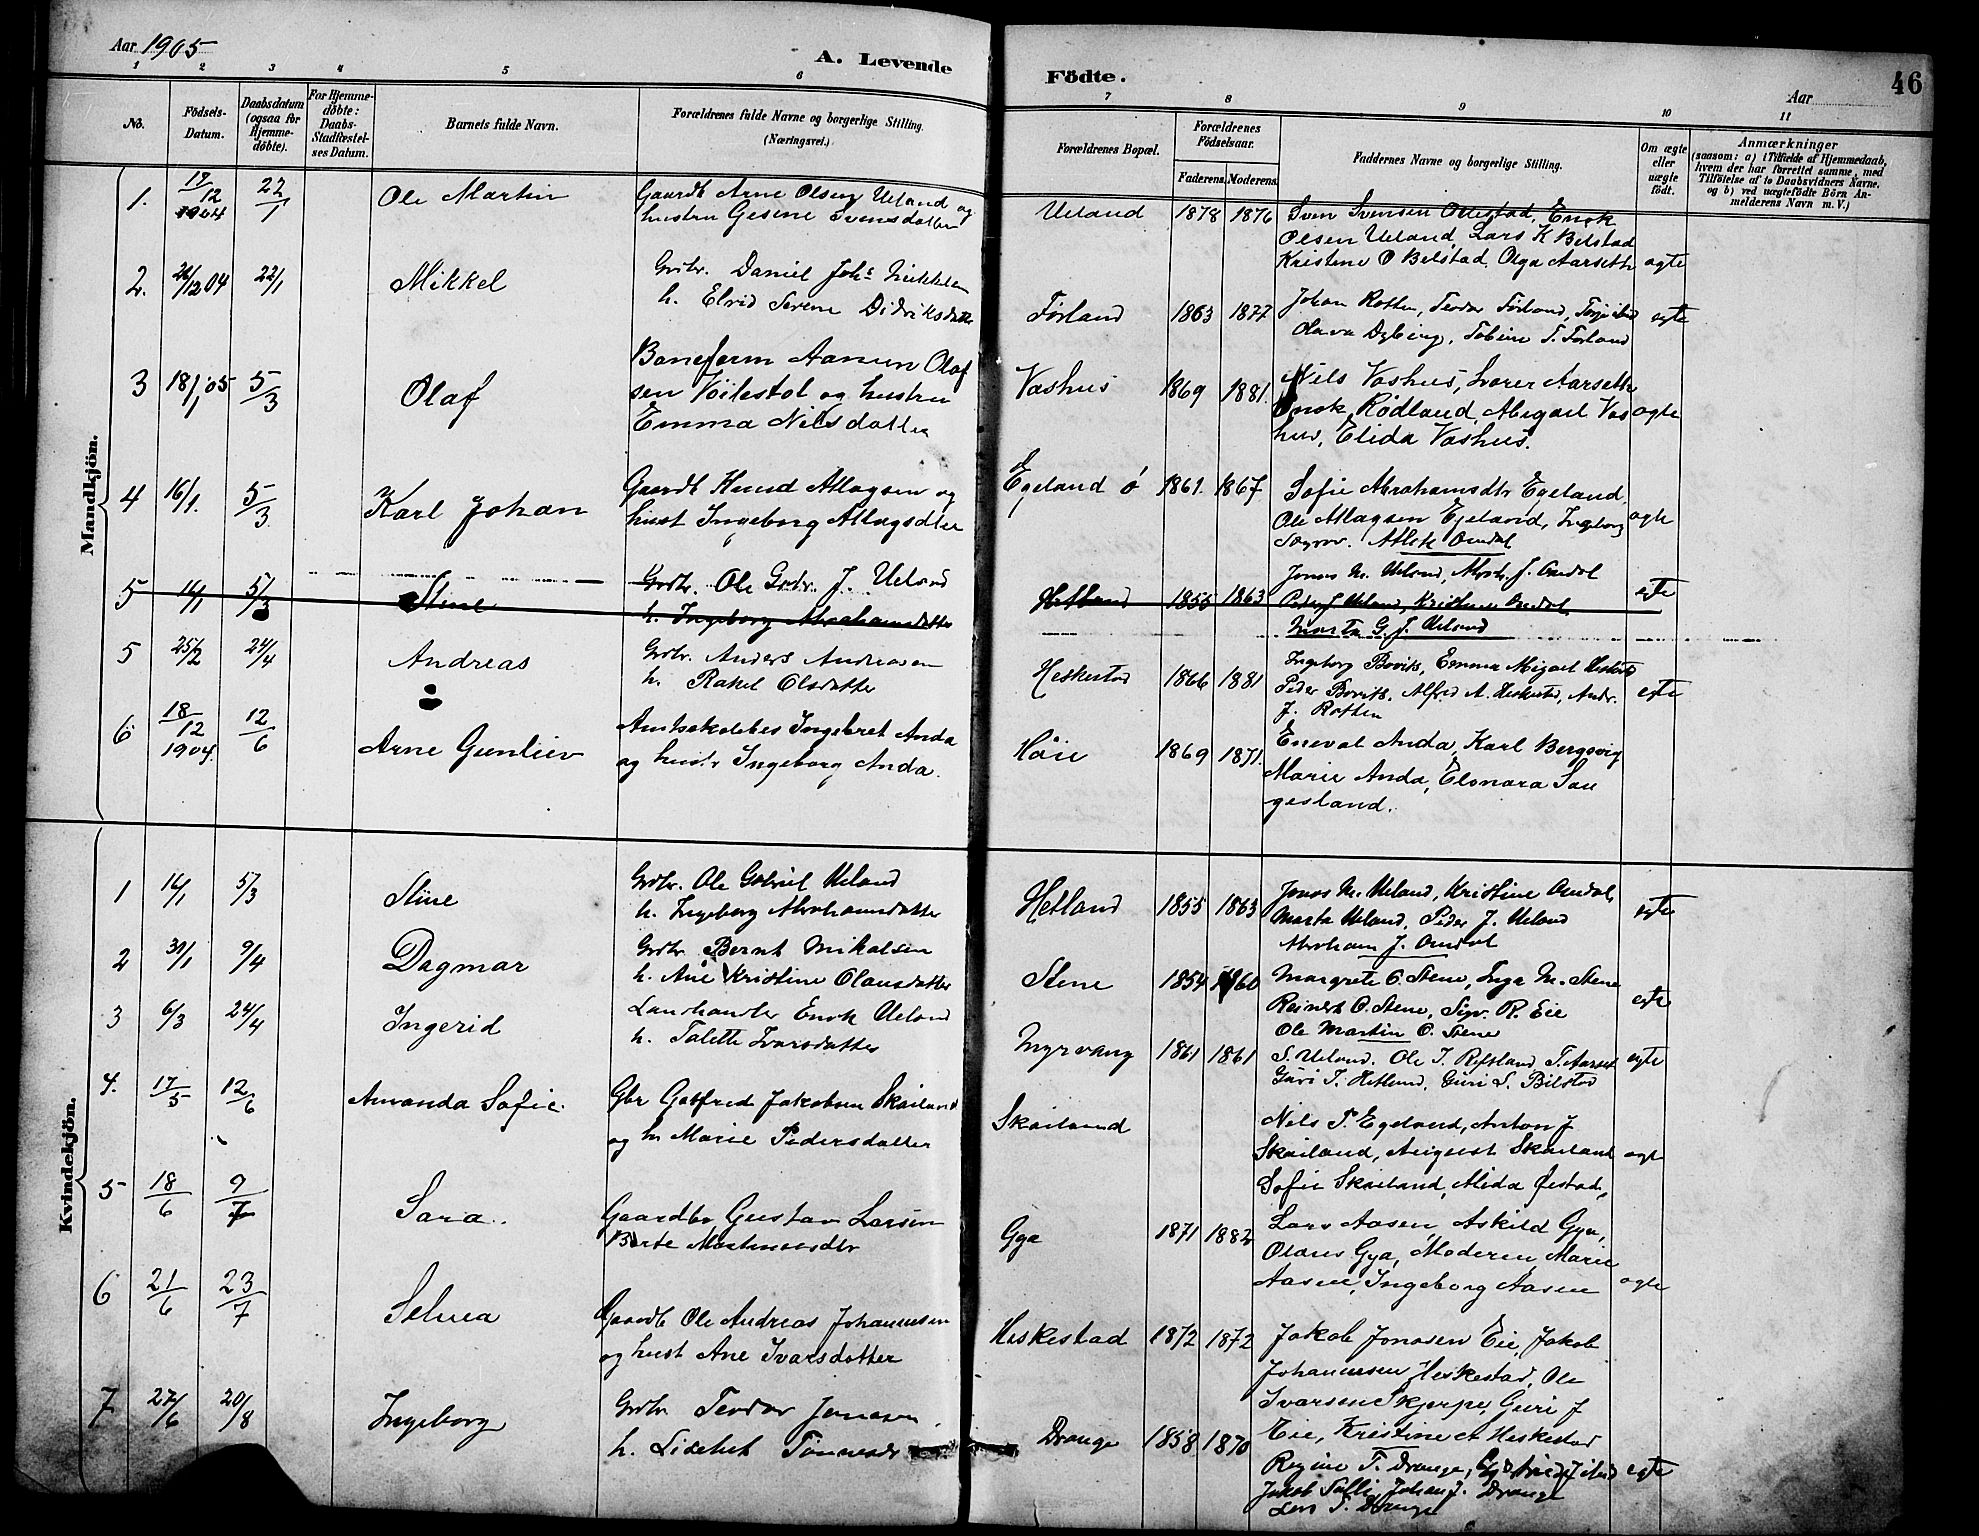 Aar 1905
A. Levende
Födte.
Aar
46
1 2 3 4 5 6 7 8 9 10 11
No.
Födsels-
Datum.
Daabsdatum
(ogsaa for
Hjemme-
döbte).
For Hjemme-
döbte:
Daabs-
Stadfæstel-
ses Datum.
Barnets fulde Navn.
Forældrenes fulde Navne og borgerlige Stilling.
(Næringsvei.)
Forældrenes Bopæl.
Forældrenes
Födselsaar.
Faderens. Moderens.
Faddernes Navne og borgerlige Stilling.
Om ægte
eller
uægte
födt.
Anmærkninger
(saasom: a) i Tilfælde af Hjemmedaab,
hvem der har forrettet samme, med
Tilföielse af to Daabsvidners Navne,
og b) ved uægtefödte Börn An-
melderens Navn m. V.)
Mandkjön.
1. 17/12 1904 22/1 Ole Martin
Gaardb Arne Olsen Ueland og
hustru Gesine Svensdatter
Ueland 1878 1876
Sven Svensen Ollestad, Enok
Olsen Ueland, Lars K Bilstad
Kristine O Bilstad, Olga Aarseth ægte
2. 26/12 04 22/1 Mikkel
Grdbr. Daniel Johs Mikkelsen
h. Elvid Serene Didriksdatter
Førland 1863 1877
Johan Rotten, Teodor Førland,
Olava Dybing, Tobine T. Førland
egte
3 18/1 05 5/3 Olaf
Baneform Aanen Olaf
sen Vöilestol og hustru
Emma Nilsdatter
Vashus 1869 1881.
Nils Vashus, Ivarer Aarseth
Enok Rødland, Abigael Vas
hus, Elida Vashus. ægte
4 16/1. 5/3 Karl Johan
Gaardb Knud Atlagsen og
hust Ingeborg Atlagsdter
Egeland ø 1861. 1867
Sofie Abrahamsdtr Egeland,
Ole Atlagsen Egeland, Ingeborg
Atlak Omdal
ægte
5 14/1 5/3 Stine
Grdbr. Ole Gabr. J. Ueland
h. Ingeborg Abrahamsdatter
Hetland 1855 1863
Jonas M. Ueland, Abrh. J. Omdal
Peder J Ueland, Kristine Omdal,
Marta G. J. Ueland
egte
5 25/2 24/4 Andreas
Grdbr. Anders Andreasen
h. Rakel Olsdatter
Heskestad 1866 1881
Ingeborg Bovik, Emma Abigael Heskestad
Peder Bovik, Alfred A. Heskestad, Andr.
J. Rotten
egte
6. 18/12 1904. 12/6 Arne Gunliev
Amtsskolebes Ingebret Anda
og hustr Ingeborg Anda.
Höie 1869 1871.
Eneval Anda, Karl Bergsvig
Marie Anda, Elonara Sau
gesland.
Kvindekjön.
1 14/1 5/3 Stine
Grdbr. Ole Gabriel Ueland
h. Ingeborg Abrahamsdatter
Hetland 1855 1863
Jonas M. Ueland, Kristine Omdal,
Marta Ueland, Peder J. Ueland
Abraham J. Omdal
egte
2 31/1 9/4 Dagmar
Grdbr Bernt Mikalsen
h. Ane Kristine Olausdatter
Stene 1854 1860
Margrete O. Stene, Inga M. Stene
Reinert O. Stene, Sigv. R. Eie
Ole Martin O. Stene
egte
3 6/3 24/4 Ingerid
Landhandler Enok Ueland
h. Talette Ivarsdatter
Myrvang 1861 1861
S. Ueland. Ole I. Refsland, T. Aarset
Guri T. Hetland, Guri S. Bilstad
egte
4. 17/5 12/6 Amanda Sofie.
Gbr Gotfred Jakobsen Skailand
og h. Marie Pedersdatter
Skailand
Nils P. Egeland, Anton J
Skailand, August Skailand
Sofie Skailand, Alida Østad,
ægte
5 18/6 9/7 Sara.
Gaardbr Gustav Larsen
Berte Martineusdtr
Gya 1871 1882
Lars Aasen, Askild Gya,
Olaus Gya, Moderen, Marie
Aasen, Ingeborg Aasen ægte
6 21/6 23/7 Selma
Gaardb Ole Andreas Johannesen
og hust Ane Ivarsdatter
Heskestad 1872 1872
Jakob Jonasen Eie, Jakob
Johannesen Heskestad, Ole
Ivarsen Skjerpe, Guri J
Eie, Kristine A Heskestad
7 27/6 20/8 Ingeborg
Grdbr Teodor Jonasen
h. Lisebet Tönnesdr
Drange 1858 1870
Regine T. Drange,
Jakob Salli, Johan J. Drange
Lars T. Drange
egte